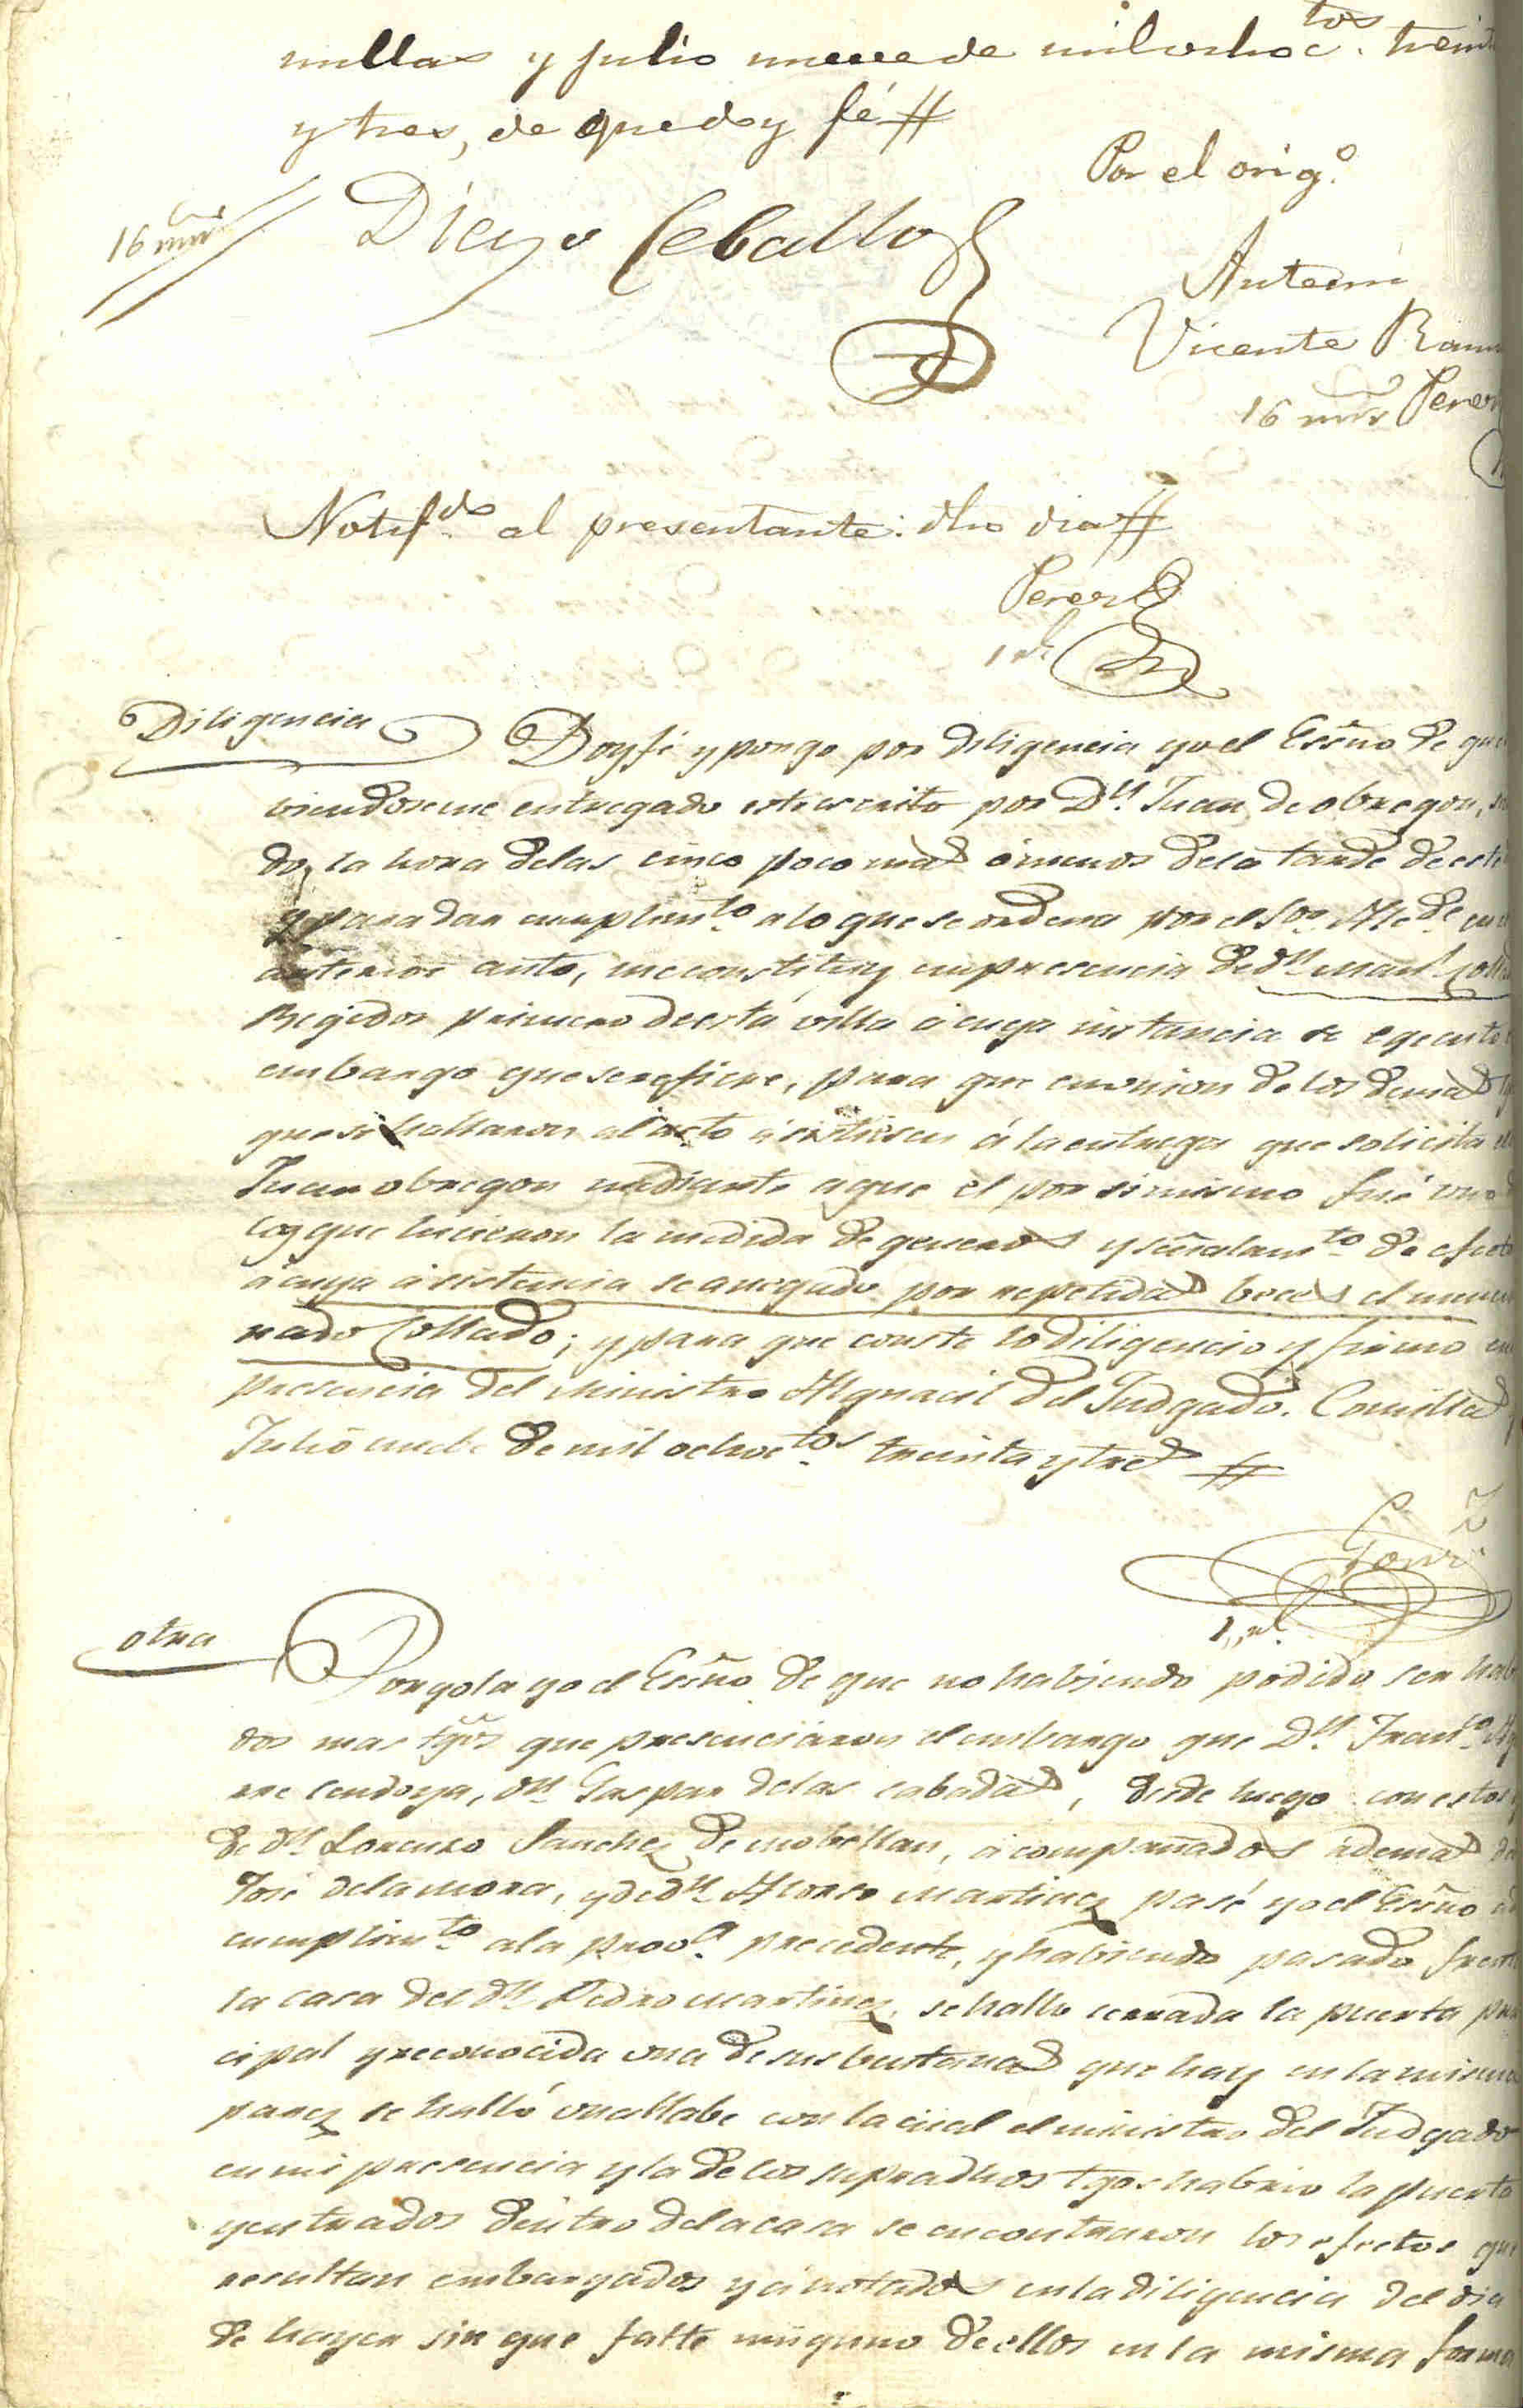 millas y Julio nueve de mil ochoc.tos treint
y tres, de que doy fé #
Por el orig.o
16 mrs
Diego Ceballos
Antemi
Vicente Ram
16 mrs Perez
Notif.do al presentante: dho dia #
Perez
1 rl.
Diligencia Doy fé y pongo por diligencia yo el Essno de que
viendoseme entregado este escrito por D.n Juan de obregon,
do, la hora delas cinco poco mas ómenos dela tarde de este
y para dar cumplim.to a lo que se ordena por el Sor. Alc.de en
anterior auto, me constituy en presencia de d.n Man.l Colla
Regidor primero de esta villa á cuya instancia se egecuto
embargo que se refiere, para que en union de los demas
que se hallaron al acto ásistiesen á la entrega que solicita el
Juan obregon mediante a que él por si mismo fué uno
los que hicieron la medida de generos y señalam.to de efect
á cuya ásistencia se anegado por repetidas beces el menci
nado Collado; y para que conste lo diligencio y firmo en
presencia del Ministro Alguacil del Judgado. Comillas
Julio nuebe de mil ochoc.tos treinta y tres #
1,, rl.
otra Pongola yo el Essno de que no habiendo podido ser hab
dos mas tgos que presenciaron el embargo que D.n Fran.co
rre Cendoya, d.n Gaspar delas cabadas, desde luego con estos
de d.n Lorenzo Sanchez de mobellan, ácompañados ádemas de
José dela mora, y de d.n Alonso Martinez pasé yo el Essno
cumplim.to ala prov.a precedente, y habiendo pasado frente
la casa del d.n Pedro Martinez, se hallo cerrada la puerta prin
cipal y reconocida una de sus bentanas que hay en la misma
parez se halló una llabe con la cual el ministro del Judgado
en mi presencia y la de los supradhos tgos habrio la puerta
y entrados dentro dela casa se encontraron los efectos que
resultan embargados y ánotados en la diligencia del dia
de hayer sin que falte ninguno de ellos en la misma forma